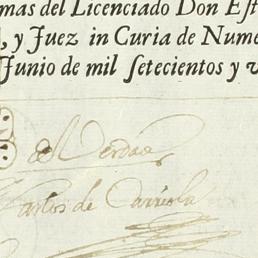 mas del Licenciado Don Est
, y Juez in Curia de Nume
Junio de mil setecientos y v
de Verdad
Carlos de Carriola